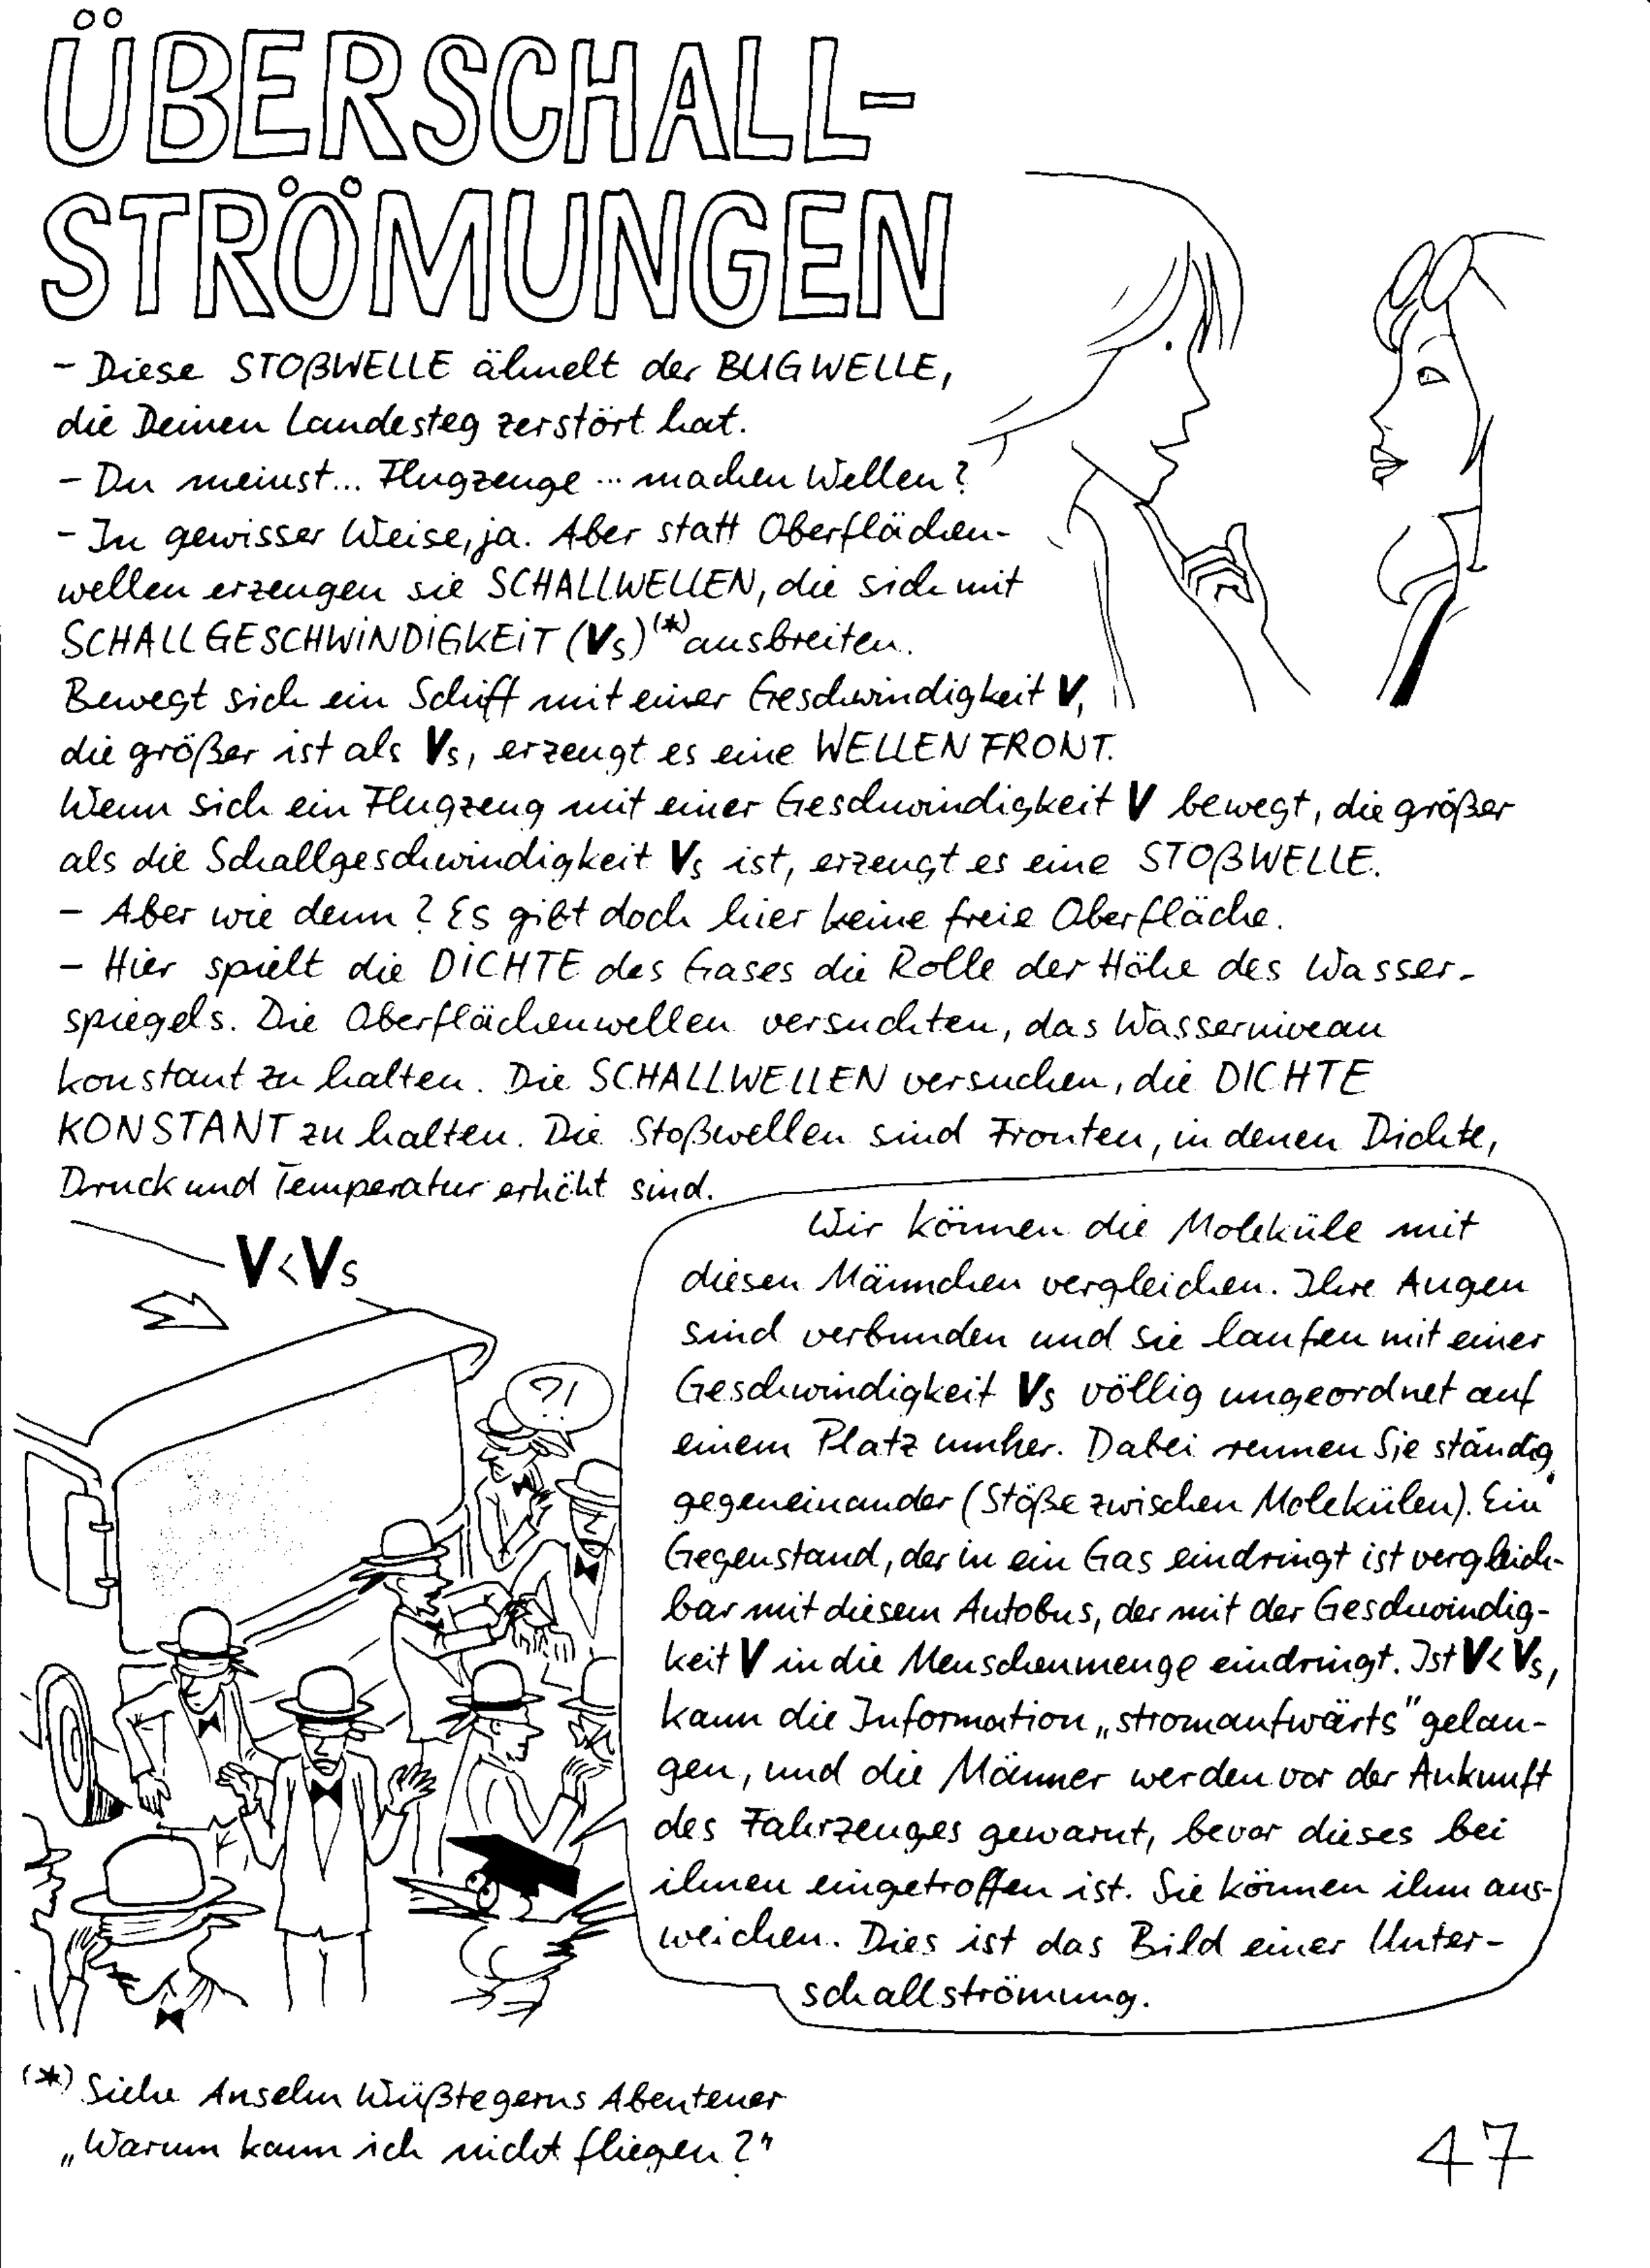 ÜBERSCHALL-
STRÖMUNGEN
- Diese STOßWELLE ähnelt der BUGWELLE,
die Deinen Landesteg zerstört hat.
- Du meinst... Flugzeuge ... machen Wellen?
- In gewisser Weise, ja. Aber statt Oberflächen-
wellen erzeugen sie SCHALLWELLEN, die sich mit
SCHALLGESCHWINDIGKEIT (Vs)(*) ausbreiten.
Bewegt sich ein Schiff mit einer Geschwindigkeit V,
die größer ist als Vs, erzeugt es eine WELLENFRONT.
Wenn sich ein Flugzeug mit einer Geschwindigkeit V bewegt, die größer
als die Schallgeschwindigkeit Vs ist, erzeugt es eine STOßWELLE.
- Aber wie denn? Es gibt doch hier keine freie Oberfläche.
- Hier spielt die DICHTE des Gases die Rolle der Höhe des Wasser-
spiegels. Die Oberflächenwellen versuchten, das Wasserniveau
konstant zu halten. Die SCHALLWELLEN versuchen, die DICHTE
KONSTANT zu halten. Die Stoßwellen sind Fronten, in denen Dichte,
Druck und Temperatur erhöht sind.
V<Vs
?!
Wir können die Moleküle mit
diesen Männchen vergleichen. Ihre Augen
sind verbunden und sie laufen mit einer
Geschwindigkeit Vs völlig ungeordnet auf
einem Platz umher. Dabei rennen Sie ständig
gegeneinander (Stöße zwischen Molekülen). Ein
Gegenstand, der in ein Gas eindringt ist vergleich-
bar mit diesem Autobus, der mit der Geschwindig-
keit V in die Menschenmenge eindringt. Ist V<Vs,
kann die Information „stromaufwärts" gelan-
gen, und die Männer werden vor der Ankunft
des Fahrzeuges gewarnt, bevor dieses bei
ihnen eingetroffen ist. Sie können ihm aus-
weichen. Dies ist das Bild einer Unter-
schallströmung.
(*) Siehe Anselm Wüßtegerns Abenteuer
„Warum kann ich nicht fliegen?"
47